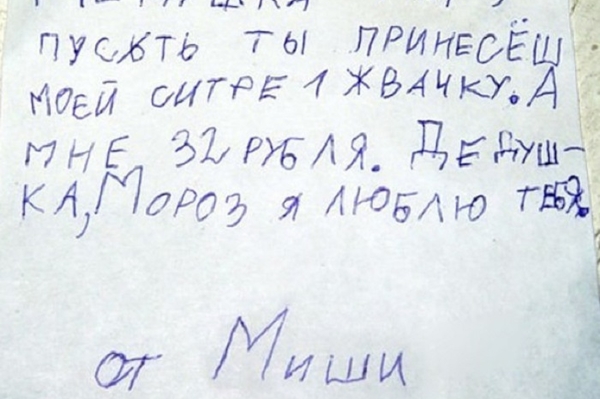 пусть ты принесёш
моей ситре 1 жвачку. А
мне 32 рубля. Дедуш-
ка, Мороз я люблю тебя.
от Миши